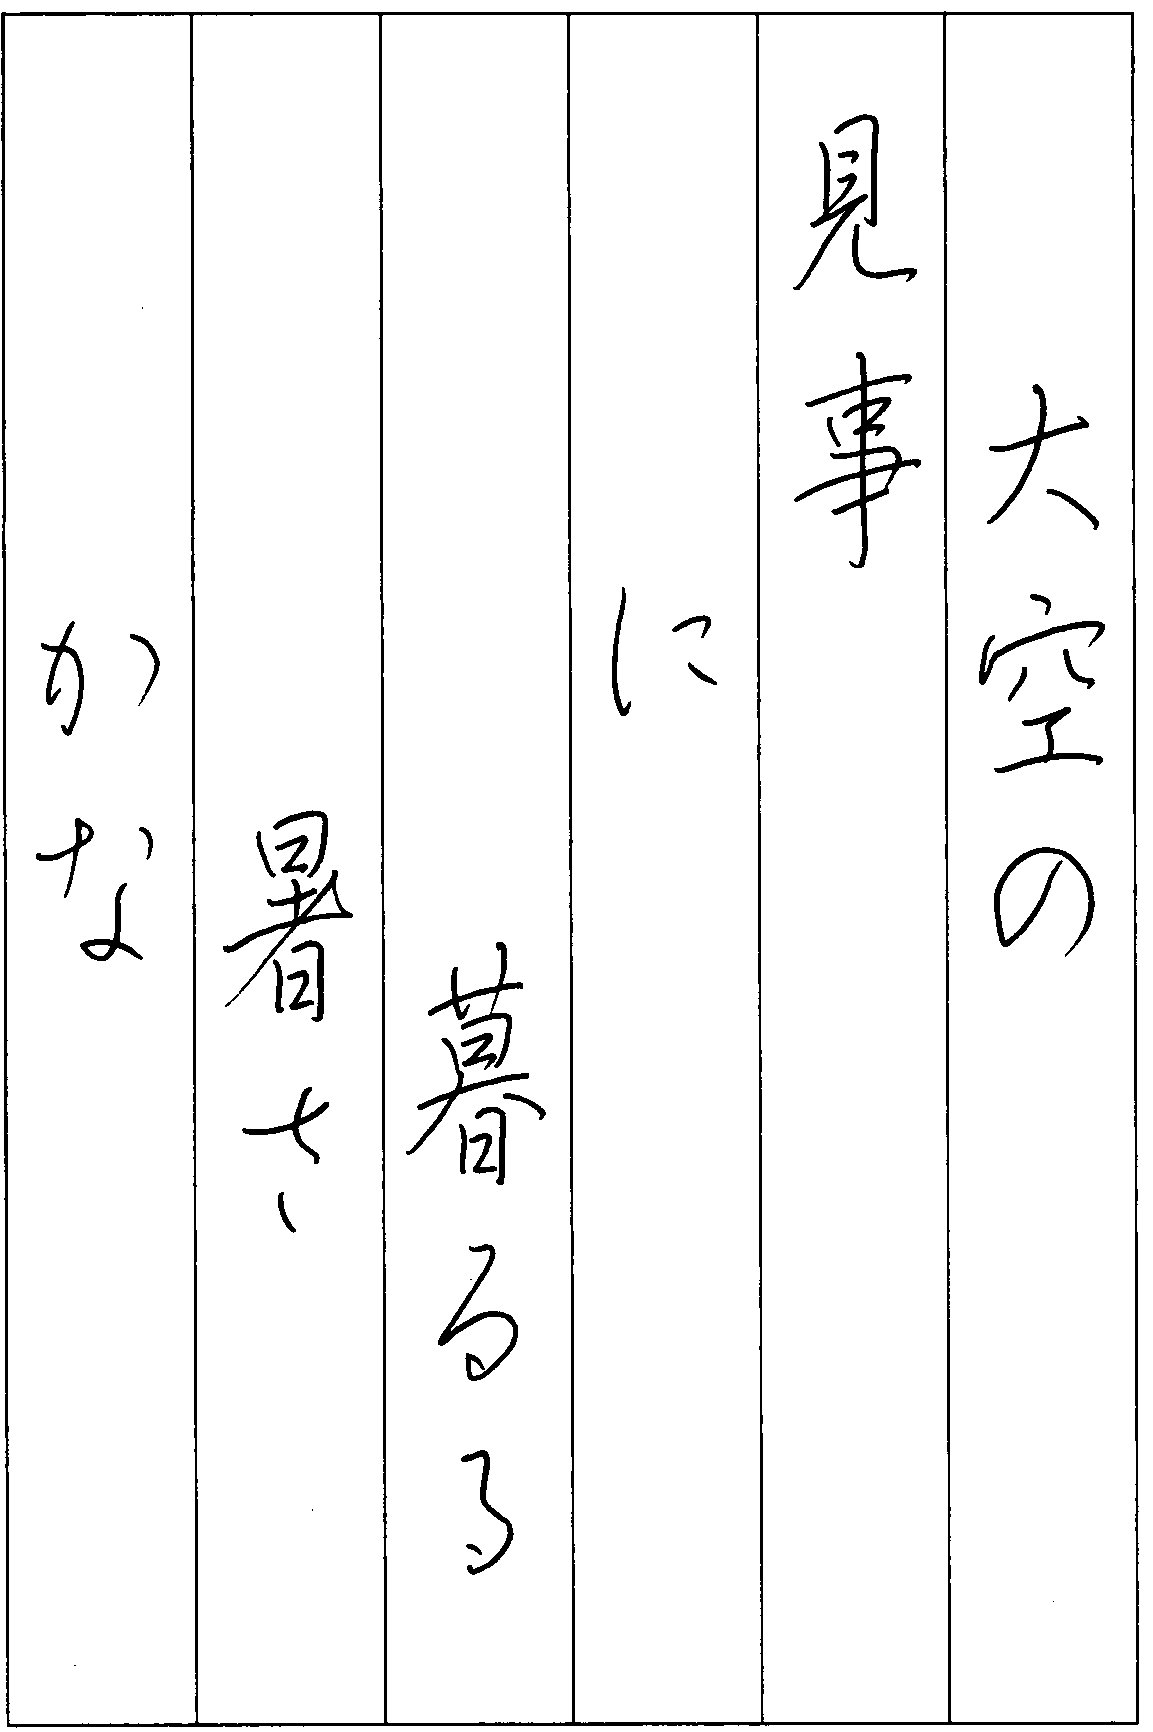 大空の
見事
に
暮るる
暑さ
かな